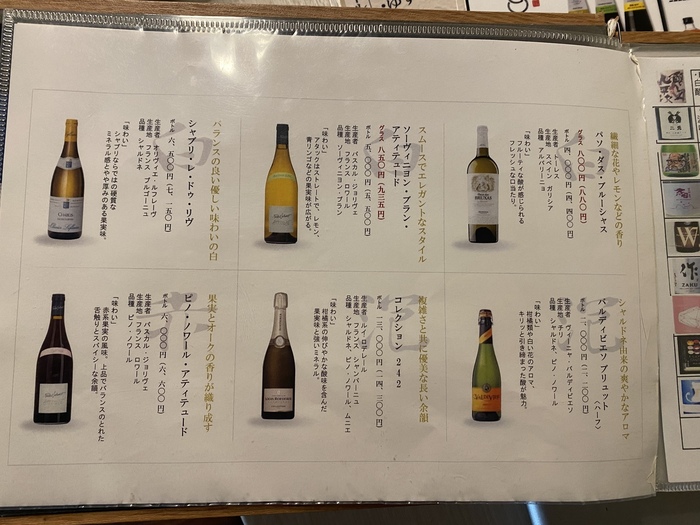 繊細な花やレモンなどの香り
パソ・ダス・ブルーシャス
グラス 八〇〇円（八八〇円）
生産者 トーレス
生産地 スペイン ガリシア
品種 アルバリーニョ
「味わい」
フルーティな酸が感じられる
フレッシュな口当たり。
スムースでエレガントなスタイル
ソーヴィニヨン・ブラン・
アティテュード
グラス 八五〇円（九三五円）
ボトル 五、〇〇〇円（五、五〇〇円）
生産者 パスカル・ジョリヴェ
生産地 フランス ロワール
品種 ソーヴィニヨン ブラン
「味わい」
アタックはストレートで、レモン、
青リンゴなどの果実味が広がる。
バランスの良い優しい味わいの白
シャブリ・レ・ドゥ・リヴ
ボトル 六、五〇〇円（七、一五〇円）
生産者 オリヴィエ・ルフレーヴ
生産地 フランス ブルゴーニュ
品種 シャルドネ
「味わい」
シャブリならではの硬質な
ミネラル感とやや厚みのある果実味。
シャルドネ由来の爽やかなアロマ
バルディビエソ ブリュット
〈ハーフ〉
生産者 ヴィーニャ・バルディビエソ
生産地 チリ
品種 シャルドネ、ピノ・ノワール
「味わい」
柑橘類や白い花のアロマ。
キリッと引き締まった酸が魅力。
複雑さと共に優美な長い余韻
コレクション 242
ボトル 一三、〇〇〇円（一四、三〇〇円）
生産者 ルイ・ロデレール
生産地 フランス シャンパーニュ
品種 シャルドネ、ピノ・ノワール、ムニエ
「味わい」
柑橘系の伸びやかな酸味を含んだ
果実味と強いミネラル。
果実とオークの香りが織り成す
ピノ・ノワール・アティテュード
ボトル 六、〇〇〇円（六、六〇〇円）
生産者 パスカル・ジョリヴェ
生産地 フランス ロワール
品種 ピノ・ノワール
「味わい」
赤系果実の風味。上品でバランスのとれた
舌触りとスパイシーな余韻。